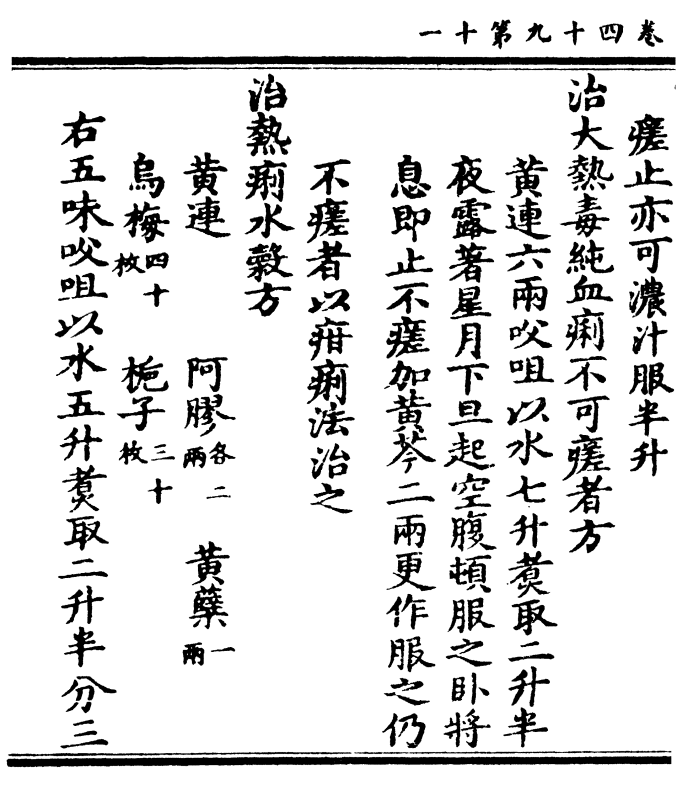 卷四十九第十一
瘥止亦可濃汁服半升
治大熱毒純血痢不可瘥者方
黃連六兩㕮咀以水七升煑取二升半
夜露著星月下旦起空腹頓服之卧將
息即止不瘥加黃芩二兩更作服之仍
不瘥者以疳痢法治之
治熱痢水穀方
黃連 阿膠各二兩 黃蘗一兩
烏梅四十枚 梔子三十枚
右五味㕮咀以水五升煑取二升半分三